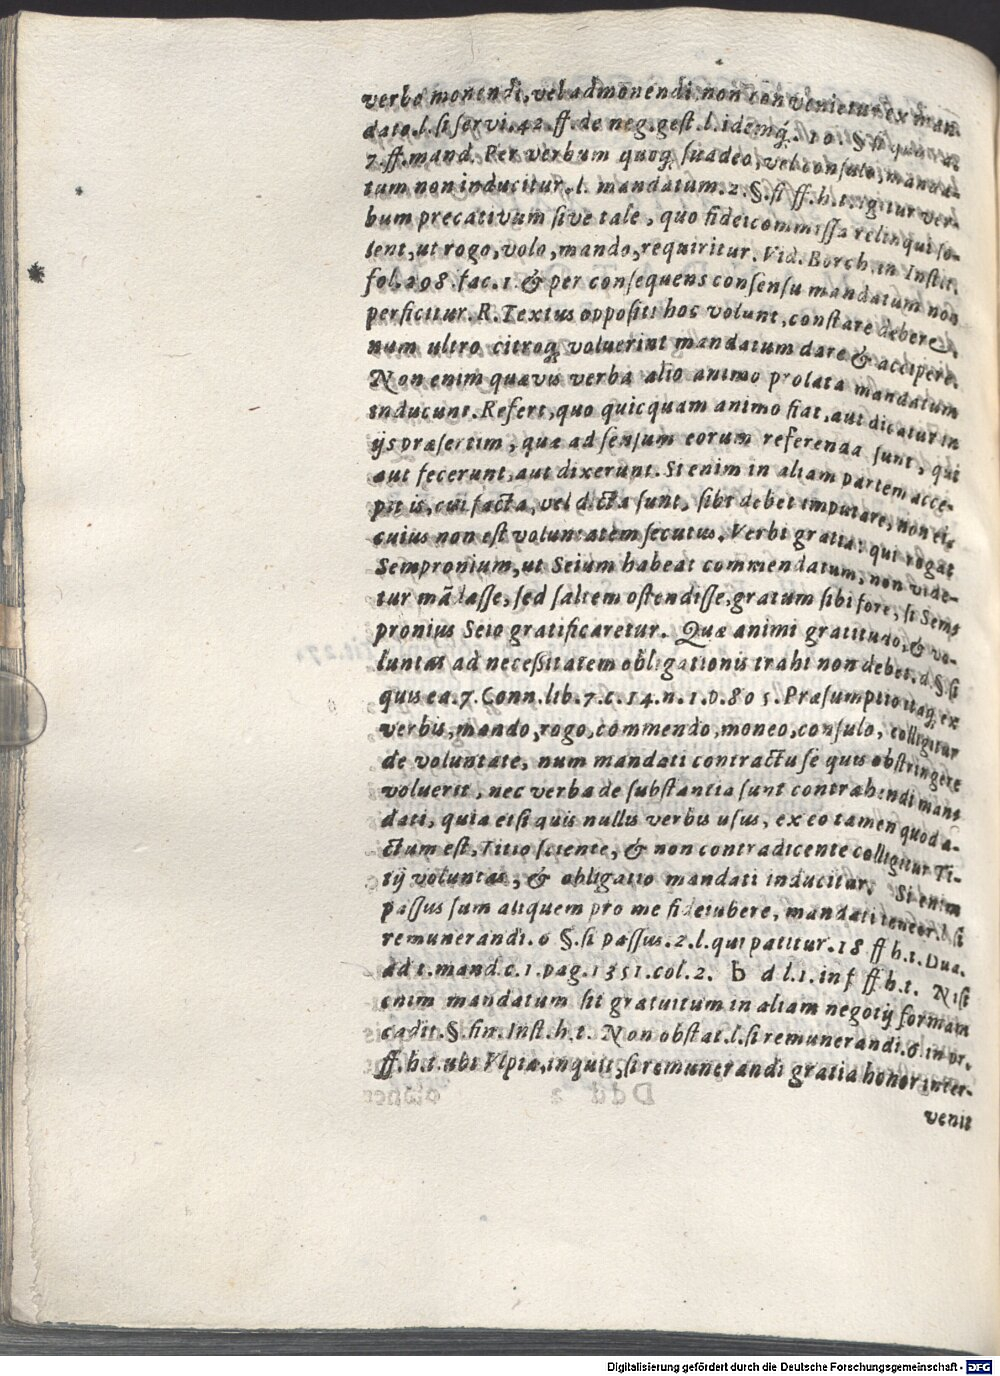 verbo monendi, vel admonendi non convenietur ex man-
dato. l. si servi. 42. ff. de neg. gest. l. idemq́. 10. §. si quis ea.
7. ff. mand. Per verbum quoq; suadeo, vel consulo, manda-
tum non inducitur. l. mandatum. 2. §. si ff. h. t. igitur ver-
bum precativum sive tale, quo fideicommissa relinqui so-
lent, ut rogo, volo, mando, requiritur. Vid. Borch. in Instit.
fol. 298. fac. 1. & per consequens consensu mandatum non
perficitur. R. Textus oppositi hoc volunt, constare debere,
num ultro citroq; voluerint mandatum dare & accipere.
Non enim quævis verba alio animo prolata mandatum
inducunt. Refert, quo quicquam animo fiat, aut dicatur in
ijs præsertim, quæ ad sensum eorum referenda sunt, qui
aut fecerunt, aut dixerunt. Si enim in aliam partem acce-
pit is, cui facta, vel dicta sunt, sibi debet imputare, non ei,
cuius non est voluntatem secutus. Verbi gratia: qui rogat
Sempronium, ut Seium habeat commendatum, non vide-
tur mādasse, sed saltem ostendisse, gratum sibi fore, si Sem-
pronius Seio gratificaretur. Quæ animi gratitudo, & vo-
luntas ad necessitatem obligationis trahi non debet. d. §. si
quis ea. 7. Conn. lib. 7. c. 14. n. 1. p. 805. Præsumptio itaq; ex
verbis, mando, rogo, commendo, moneo, consulo, colligitur
de voluntate, num mandati contractu se quis obstringere
voluerit, nec verba de substantia sunt contrahendi man-
dati, quia etsi quis nullis verbis usus, ex eo tamen quod a-
ctum est, Titio sciente, & non contradicente colligitur Ti-
tij voluntas, & obligatio mandati inducitur. Si enim
passus sum aliquem pro me fideiubere, mandati teneor. l. si
remunerandi. 6 §. si passus. 2. l. qui patitur. 18 ff h. t. Dua.
ad t. mand. c. 1. pag. 1351. col. 2. b d l. 1. in f ff. h. t. Nisi
enim mandatum sit gratuitum in aliam negotij formam
cadit. §. fin. Inst. h. t. Non obstat. l. si remunerandi. 6. in pr.
ff. h. t. ubi Vlpia, inquit, si remunerandi gratia honor inter-
venit
Digitalisierung gefördert durch die Deutsche Forschungsgemeinschaft - DFG